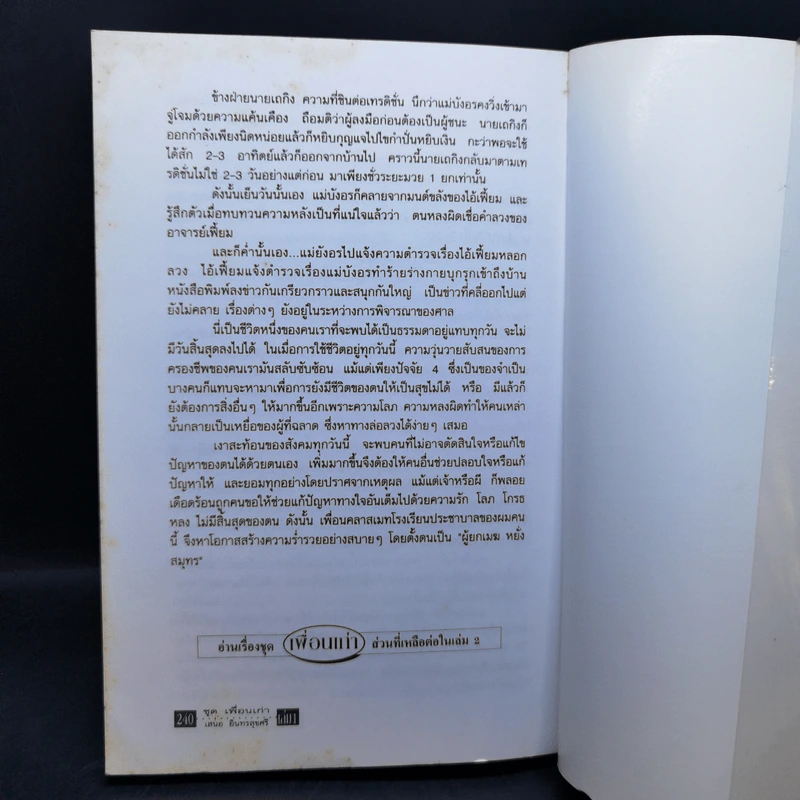 ข้างฝ่ายนายเถกิง ความที่ชินต่อเทรดิชั่น นึกว่าแม่บังอรคงวิ่งเข้ามา
จู่โจมด้วยความแค้นเคือง ถือมติว่าผู้ลงมือก่อนต้องเป็นผู้ชนะ นายเถกิงก็
ออกกำลังเพียงนิดหน่อยแล้วก็หยิบกุญแจไปไขกำปั่นหยิบเงิน กะว่าพอจะใช้
ได้สัก 2-3 อาทิตย์แล้วก็ออกจากบ้านไป คราวนี้นายเถกิงกลับมาตามเท
รดิชั่นไม่ใช่ 2-3 วันอย่างแต่ก่อน มาเพียงชั่วระยะมวย 1 ยกเท่านั้น
ดังนั้นเย็นวันนั้นเอง แม่บังอรก็คลายจากมนต์ขลังของไอ้เฟี้ยม และ
รู้สึกตัวเมื่อทบทวนความหลังเป็นที่แน่ใจแล้วว่า ตนหลงผิดเชื่อคำลวงของ
อาจารย์เฟี้ยม
และก็ค่ำนั้นเอง...แม่ยังอรไปแจ้งความตำรวจเรื่องไอ้เฟี้ยมหลอก
ลวง ไอ้เฟี้ยมแจ้งตำรวจเรื่องแม่บังอรทำร้ายร่างกายบุกรุกเข้าถึงบ้าน
หนังสือพิมพ์ลงข่าวกันเกรียวกราวและสนุกกันใหญ่ เป็นข่าวที่คลี่ออกไปแต่
ยังไม่คลาย เรื่องต่างๆ ยังอยู่ในระหว่างการพิจารณาของศาล
นี่เป็นชีวิตหนึ่งของคนเราที่จะพบได้เป็นธรรมดาอยู่แทบทุกวัน จะไม่
มีวันสิ้นสุดลงไปได้ ในเมื่อการใช้ชีวิตอยู่ทุกวันนี้ ความวุ่นวายสับสนของการ
ครองชีพของคนเรามันสลับซับซ้อน แม้แต่เพียงปัจจัย 4 ซึ่งเป็นของจำเป็น
บางคนก็แทบจะหามาเพื่อการยังมีชีวิตของตนให้เป็นสุขไม่ได้ หรือ มีแล้วก็
ยังต้องการสิ่งอื่นๆ ให้มากขึ้นอีกเพราะความโลภ ความหลงผิดทำให้คนเหล่า
นั้นกลายเป็นเหยื่อของผู้ที่ฉลาด ซึ่งหาทางล่อลวงได้ง่ายๆ เสมอ
เงาสะท้อนของสังคมทุกวันนี้ จะพบคนที่ไม่อาจตัดสินใจหรือแก้ไข
ปัญหาของตนได้ด้วยตนเอง เพิ่มมากขึ้นจึงต้องให้คนอื่นช่วยปลอบใจหรือแก้
ปัญหาให้ และยอมทุกอย่างโดยปราศจากเหตุผล แม้แต่เจ้าหรือผี ก็พลอย
เดือดร้อนถูกคนขอให้ช่วยแก้ปัญหาทางใจอันเต็มไปด้วยความรัก โลภ โกรธ
หลง ไม่มีสิ้นสุดของตน ดังนั้น เพื่อนคลาสเมทโรงเรียนประชาบาลของผมคน
นี้ จึงหาโอกาสสร้างความร่ำรวยอย่างสบายๆ โดยตั้งตนเป็น "ผู้ยกเมฆ หยั่ง
สมุทร"
อ่านเรื่องชุด เพื่อนเก่า ส่วนที่เหลือต่อในเล่ม 2
240 ชุด เพื่อนเก่า
เสนอ อินทรสุขศรี เล่ม1